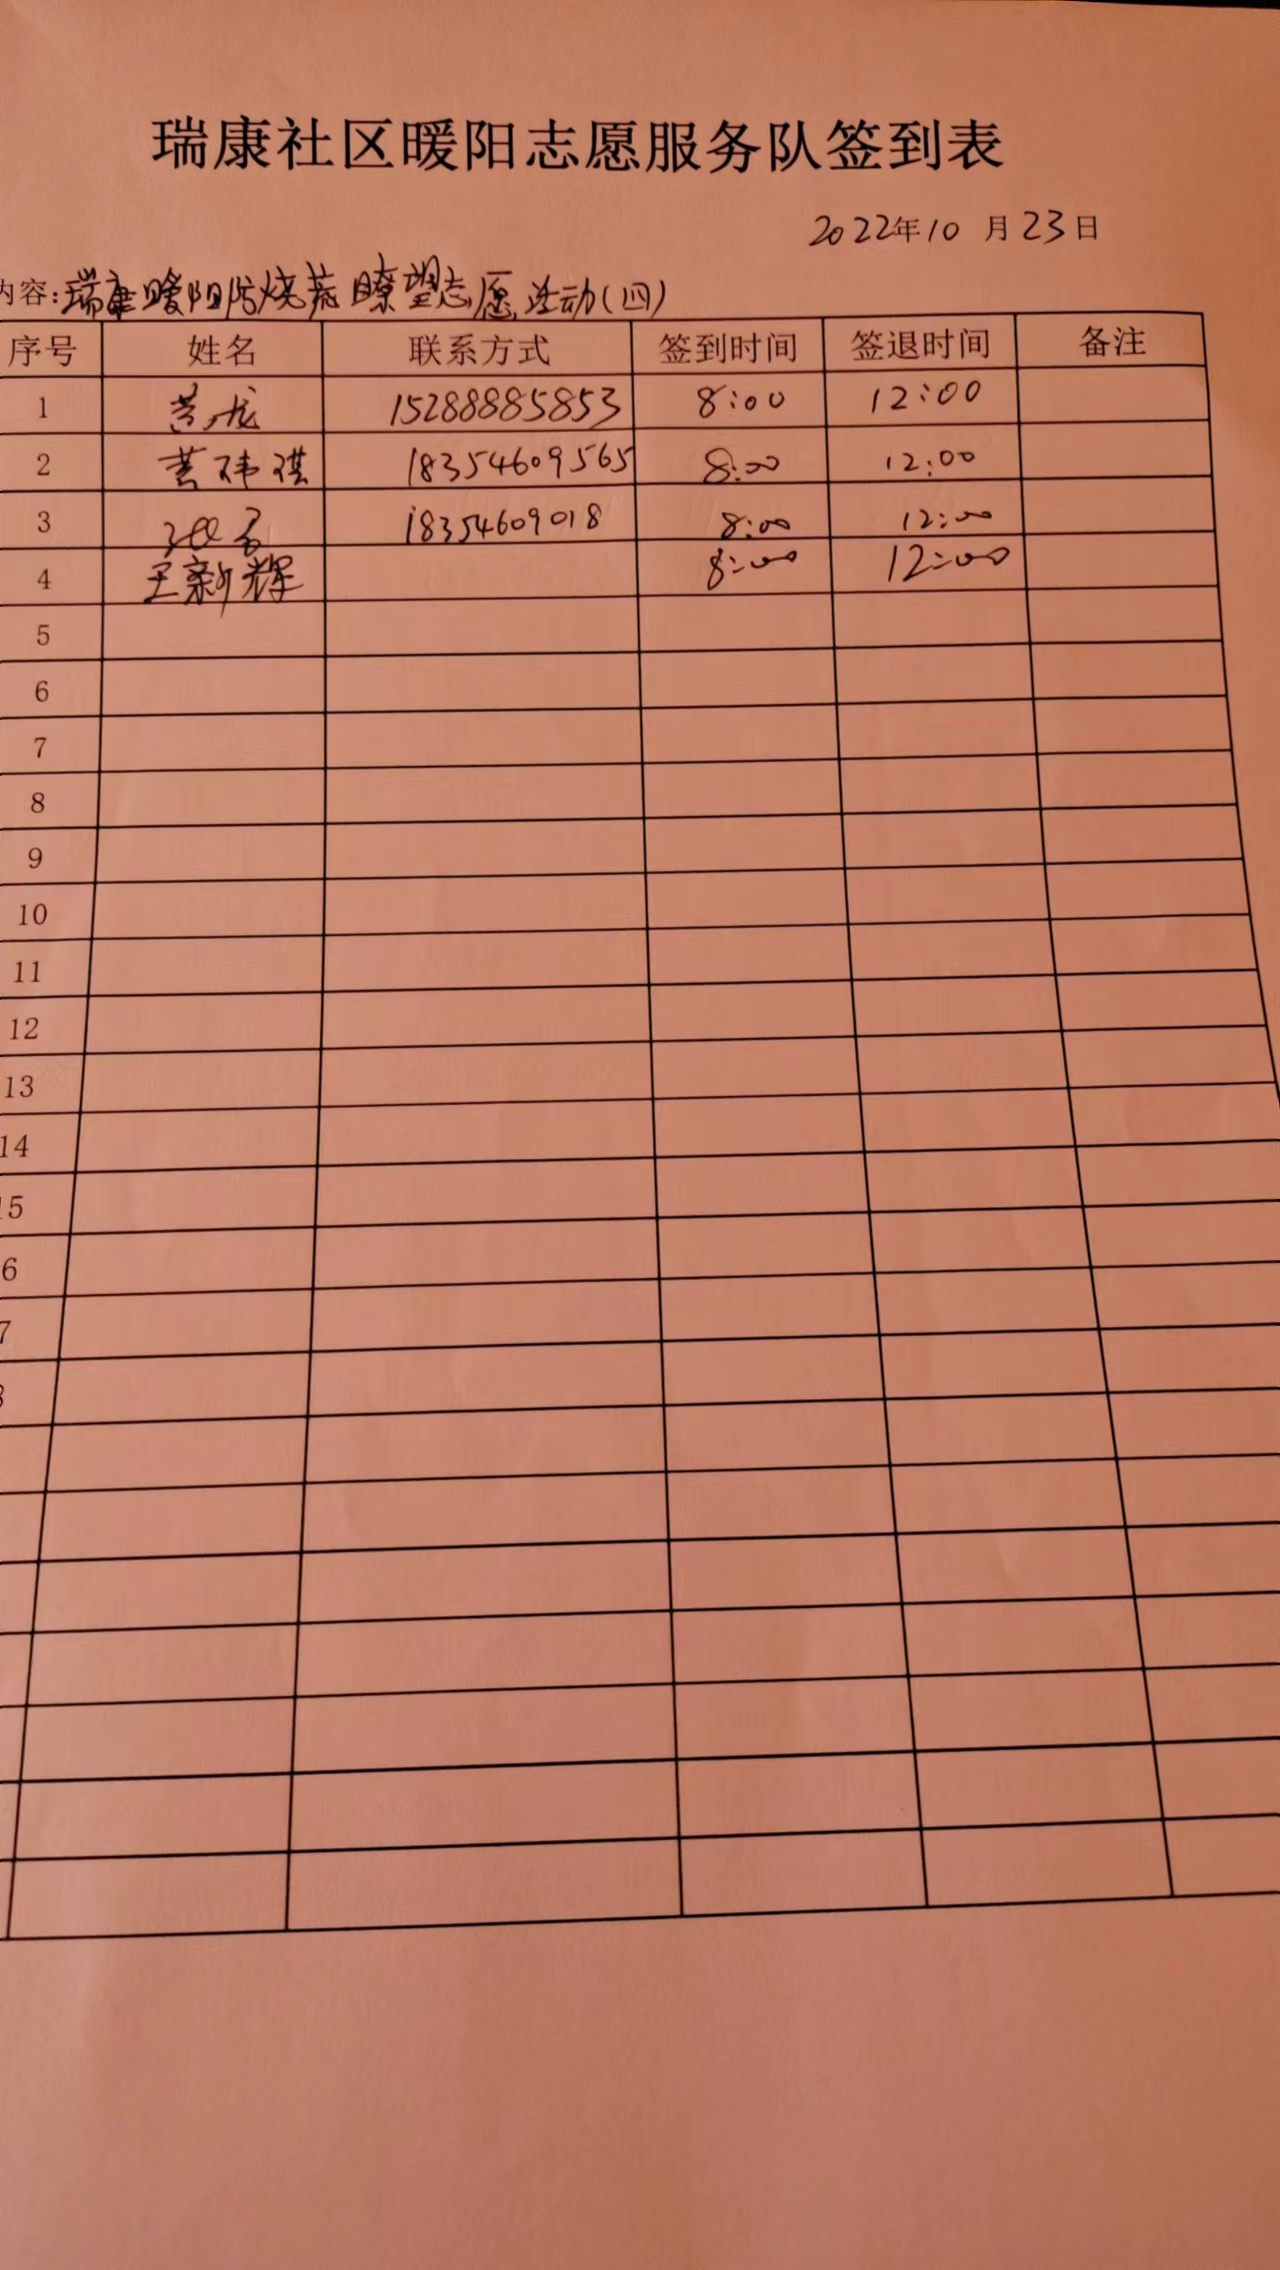 瑞康社区暖阳志愿服务队签到表
2022年10月23日
内容:瑞康暖阳防烧荒瞭望志愿活动(四)
序号 姓名 联系方式 签到时间 签退时间 备注
1 黄龙 15288885853 8:00 12:00
2 黄祎祺 18354609565 8:00 12:00
3 18354609018 8:00 12:00
4 王新辉 8:00 12:00
5
6
7
8
9
10
11
12
13
14
15
6
7
8